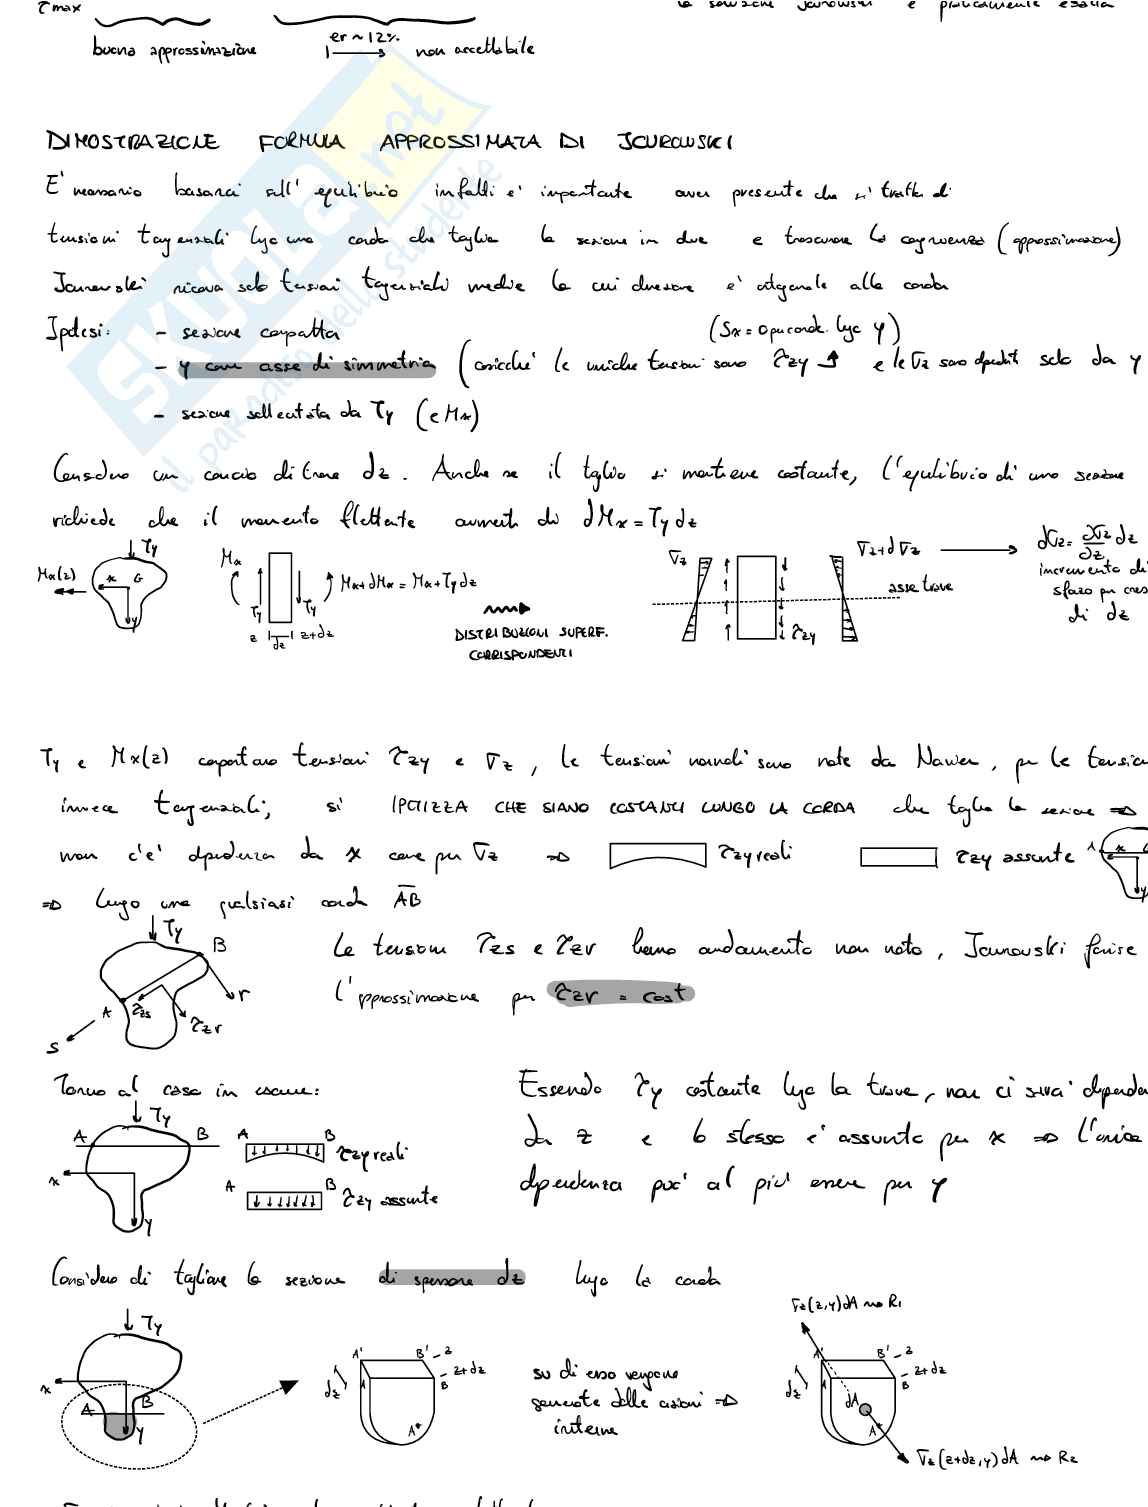 τmax
la soluzione Jourowski è praticamente esatta
er ~ 12%
buona approssimazione non accettabile
DIMOSTRAZIONE FORMULA APPROSSIMATA DI JOUROWSKI
E' necessario basarci sull' equilibrio infatti e' importante aver presente che si tratta di
tensioni tangenziali lungo una corda che taglia la sezione in due e trascurare la congruenza (approssimazione)
Jourowski ricava solo tensioni tangenziali medie la cui direzione e' ortogonale alla corda
Ipotesi: - sezione compatta (Sx = 0 per coord. lungo y)
- y come asse di simmetria (cosicché le uniche tensioni sono τzy e le σz sono dipendenti solo da y
- sezione sollecitata da Ty (e Mx)
Considero un concio di trave dz. Anche se il taglio si mantiene costante, l'equilibrio di una sezione
richiede che il momento flettente aumenti di dMx = Ty dz
Ty
Mx(z) x G y
Mx Ty Ty Mx + dMx = Mx + Ty dz
z dz z+dz
DISTRIBUZIONI SUPERF.
CORRISPONDENTI
σz τzy σz + dσz asse trave
dσz = ∂σz/∂z dz
incremento di
sforzo per cres
di dz
Ty e Mx(z) comportano tensioni τzy e σz, le tensioni normali sono note da Navier, per le tensio
invece tangenziali, si IPOTIZZA CHE SIANO COSTANTI LUNGO LA CORDA che taglia la sezione ⇒
non c'e' dipendenza da x come per σz ⇒ τzy reali τzy assunte A x G y
⇒ lungo una qualsiasi corda AB
Ty B A τzs τzr r s
Le tensioni τzs e τzr hanno andamento non noto, Jourowski fornisce
l'approssimazione per τzr = cost
Torno al caso in esame:
Ty A B x y
A B τzy reali
A B τzy assunte
Essendo Ty costante lungo la trave, non ci sara' dipenden
da z e lo stesso e' assunto per x ⇒ l'unica
dipendenza puo' al piu' essere per y
Considero di tagliare la sezione di spessore dz lungo la corda
Ty x A B y
A' B' - z
dz A B - z+dz
A*
su di esso vengono
generate delle azioni ⇒
interne
σz(z,y)dA → R1
A' B' - z
dz A B - z+dz
dA A*
σz(z+dz,y)dA → R2